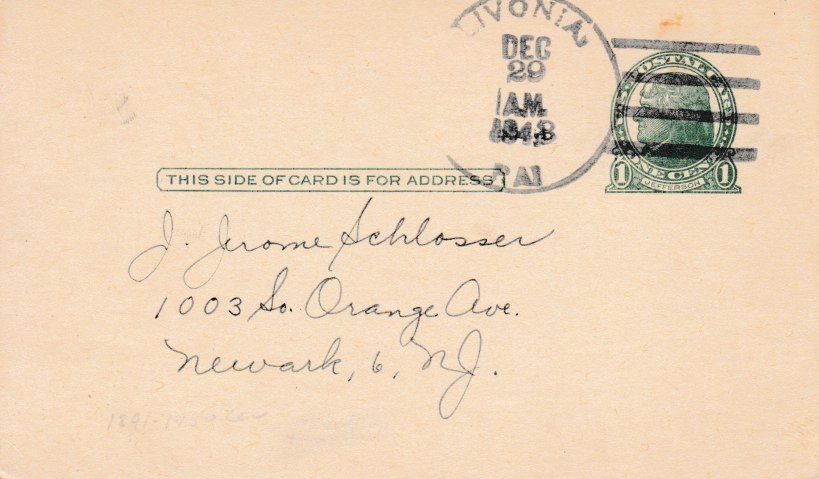 LIVONIA,
DEC
29
AM.
1948
PA
U.S. POSTAL CARD
ONE CENT
1 JEFFERSON 1
THIS SIDE OF CARD IS FOR ADDRESS
J. Jerome Schlosser
1003 So. Orange Ave.
Newark, 6, NJ.